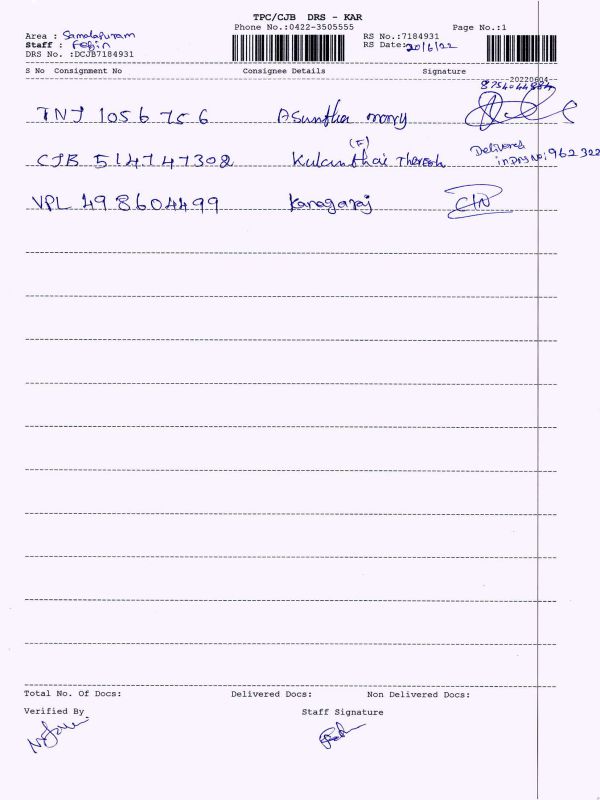 TPC/CJB DRS - KAR
Phone No.:0422-3505555 Page No.:1
Area : Samalapuram RS No.:7184931
Staff : Febin RS Date:20/6/22
DRS No. :DCJB7184931
S No Consignment No Consignee Details Signature
20220604
8754044884
TNJ 1056756 Asuntha mary
CJB 514747302 Kulanthai Theresh (F) Delivered in DRS No: 962322
VPL 498604499 Kanagaraj
Total No. Of Docs: Delivered Docs: Non Delivered Docs:
Verified By Staff Signature